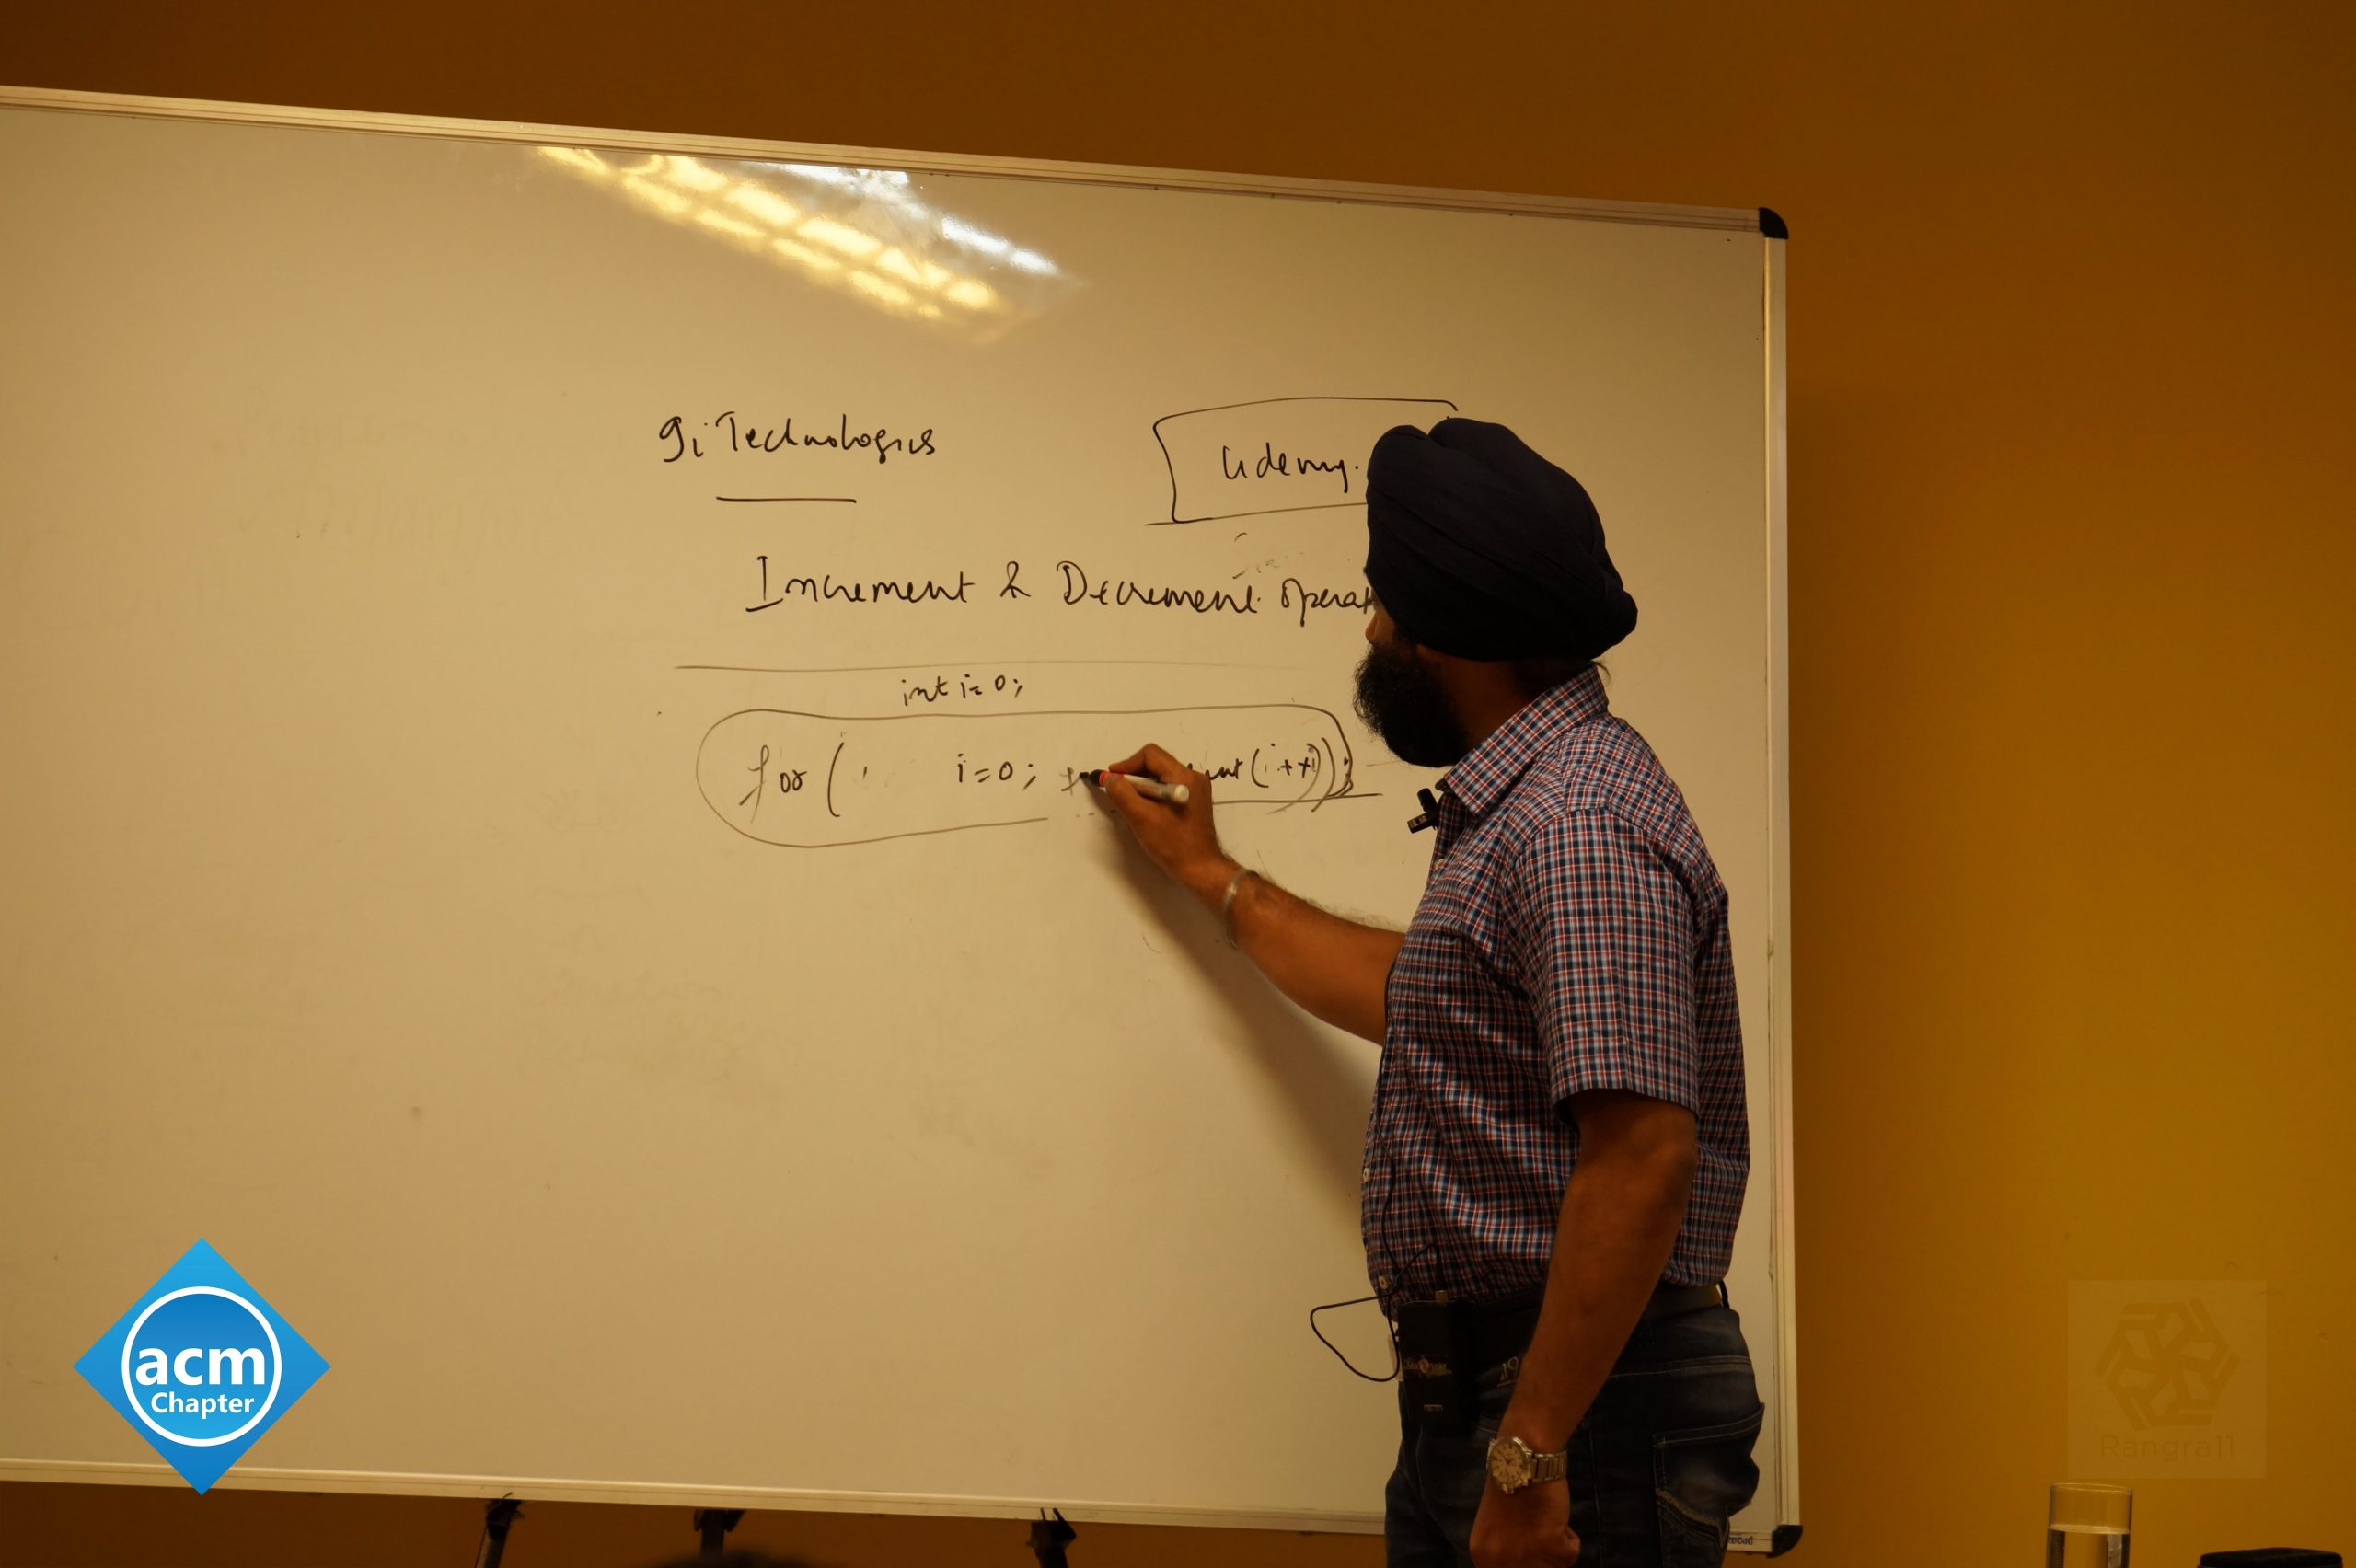 9i Technologies
Udemy.
Increment & Decrement operat
int i=0;
for ( i=0; (i++));
acm
Chapter
Rangra11